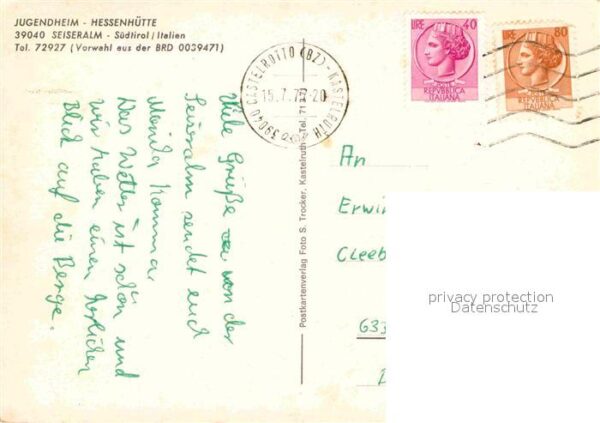 JUGENDHEIM - HESSENHÜTTE
39040 SEISERALM - Südtirol/Italien
Tel. 72927 (Vorwahl aus der BRD 0039471)
LIRE 40
REPVBBLICA
ITALIANA
LIRE 80
REPVBBLICA
ITALIANA
39040 CASTELROTTO (BZ) - KASTELRUTH
15.7.77-20
Viele Grüße von der
Seiseralm sendet euch
Das Wetter ist schön und
wir haben einen herlichen
Blick auf die Berge.
Postkartenverlag Foto S. Trocker, Kastelruth - Tel. 71
An
Erwi
Cleeb
633
privacy protection
Datenschutz